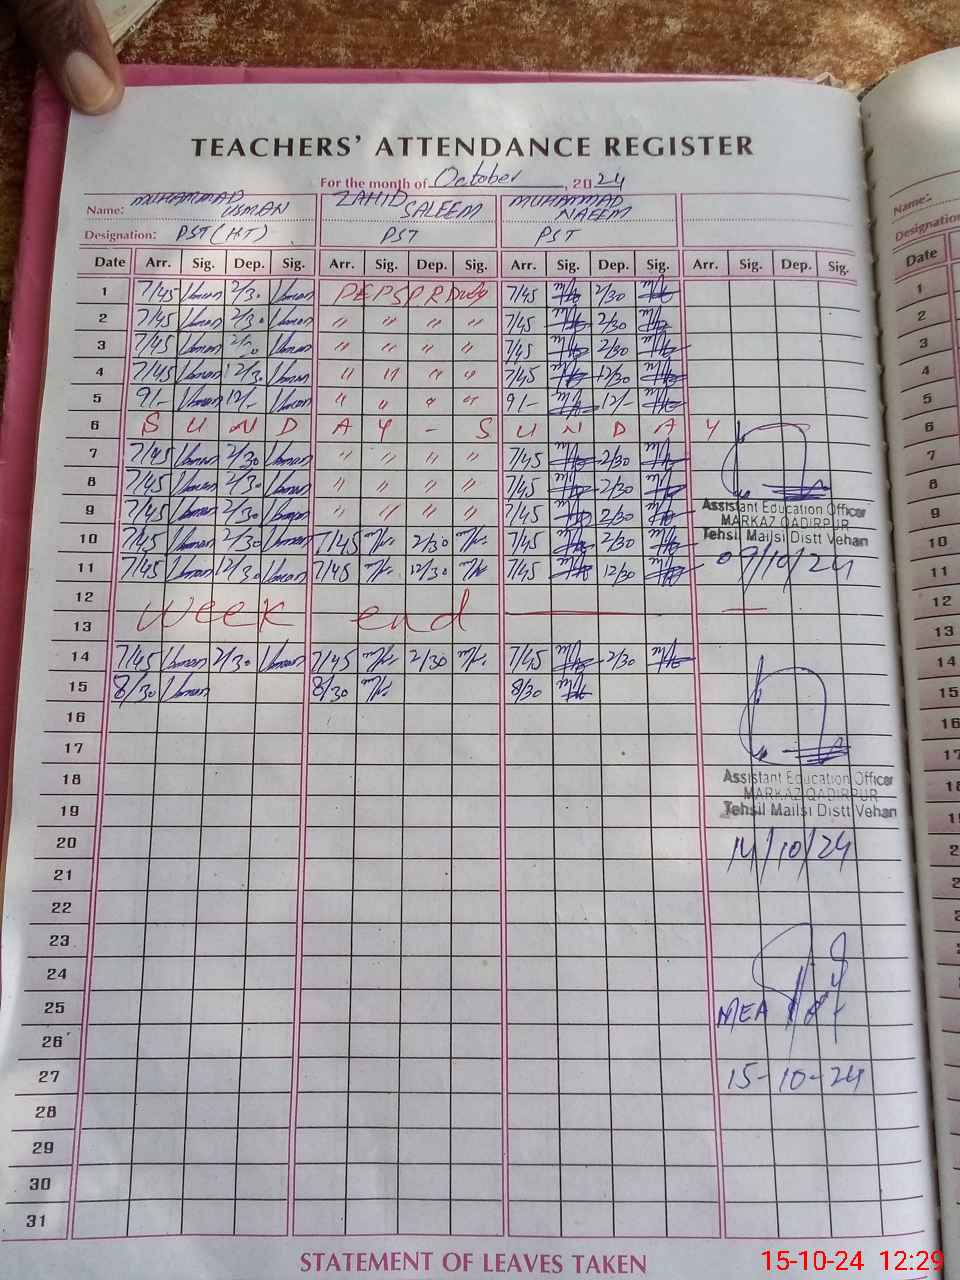 TEACHERS' ATTENDANCE REGISTER
For the month of October, 2024
Name: MUHAMMAD USMAN ZAHID SALEEM MUHAMMAD NAEEM
Designation: PST (HT) PST PST
Date Arr. Sig. Dep. Sig. Arr. Sig. Dep. Sig. Arr. Sig. Dep. Sig. Arr. Sig. Dep. Sig.
1 7/45 Usman 2/30 Usman PEPSPR Duty 7/45 2/30
2 7/45 Usman 2/30 Usman " " " " 7/45 2/30
3 7/45 Usman 2/30 Usman " " " " 7/45 2/30
4 7/45 Usman 12/30 Usman " " " " 7/45 12/30
5 9/- Usman 12/- Usman " " " " 9/- 12/-
6 S U N D A Y - S U N D A Y
7 7/45 Usman 2/30 Usman " " " " 7/45 2/30
8 7/45 Usman 2/30 Usman " " " " 7/45 2/30
9 7/45 Usman 2/30 Usman " " " " 7/45 2/30
10 7/45 Usman 2/30 Usman 7/45 2/30 7/45 2/30
11 7/45 Usman 12/30 Usman 7/45 12/30 7/45 12/30
12
week end
13
14 7/45 Usman 2/30 Usman 7/45 2/30 7/45 2/30
15 8/30 Usman 8/30 8/30
16
17
18
19
20
21
22
23
24
25
26
27
28
29
30
31
Assistant Education Officer
MARKAZ QADIRPUR
Tehsil Mailsi Distt Vehari
09/10/24
Assistant Education Officer
MARKAZ QADIRPUR
Tehsil Mailsi Distt Vehari
14/10/24
MEA
15-10-24
STATEMENT OF LEAVES TAKEN
Name:
Designation
Date
1
2
3
4
5
6
7
8
9
10
11
12
13
14
15
16
17
15-10-24 12:29